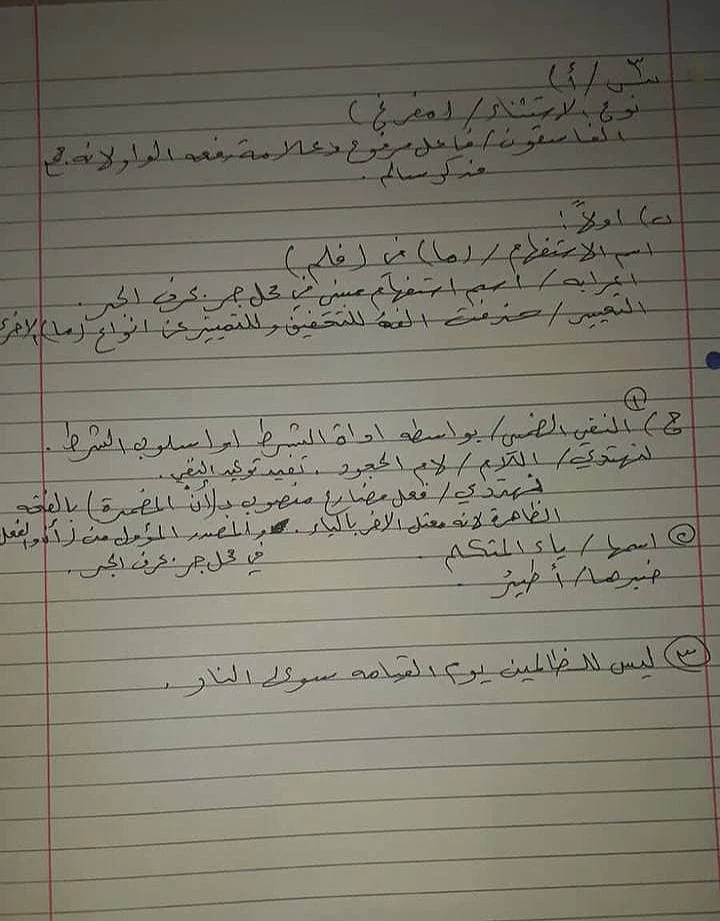 س٣/ أ)
نوع الاستثناء / (مفرغ)
الفاسقون / فاعل مرفوع وعلامة رفعه الواو لانه جمع
مذكر سالم.
ب) اولاً:
اسم الاستفهام / (ما) في (فلم)
اعرابه / اسم استفهام مبني في محل جر بحرف الجر.
التفسير / حذفت الفه للتخفيف وللتمييز عن انواع (ما) الاخرى
ج) ١ النفي الضمني / بواسطه اداة الشرط او اسلوب الشرط.
لنهتدي / اللام / لام الجحود. تفيد توكيد النفي.
نهتدي / فعل مضارع منصوب بـ(أن المضمرة) بالفتحه
الظاهرة لانه معتل الاخر بالياء. والمصدر المؤول من (أن) والفعل
في محل جر بحرف الجر.
٢ اسمها / ياء المتكلم.
خبرها / أطيرُ.
٣ ليس للظالمين يوم القيامه سوى النار.